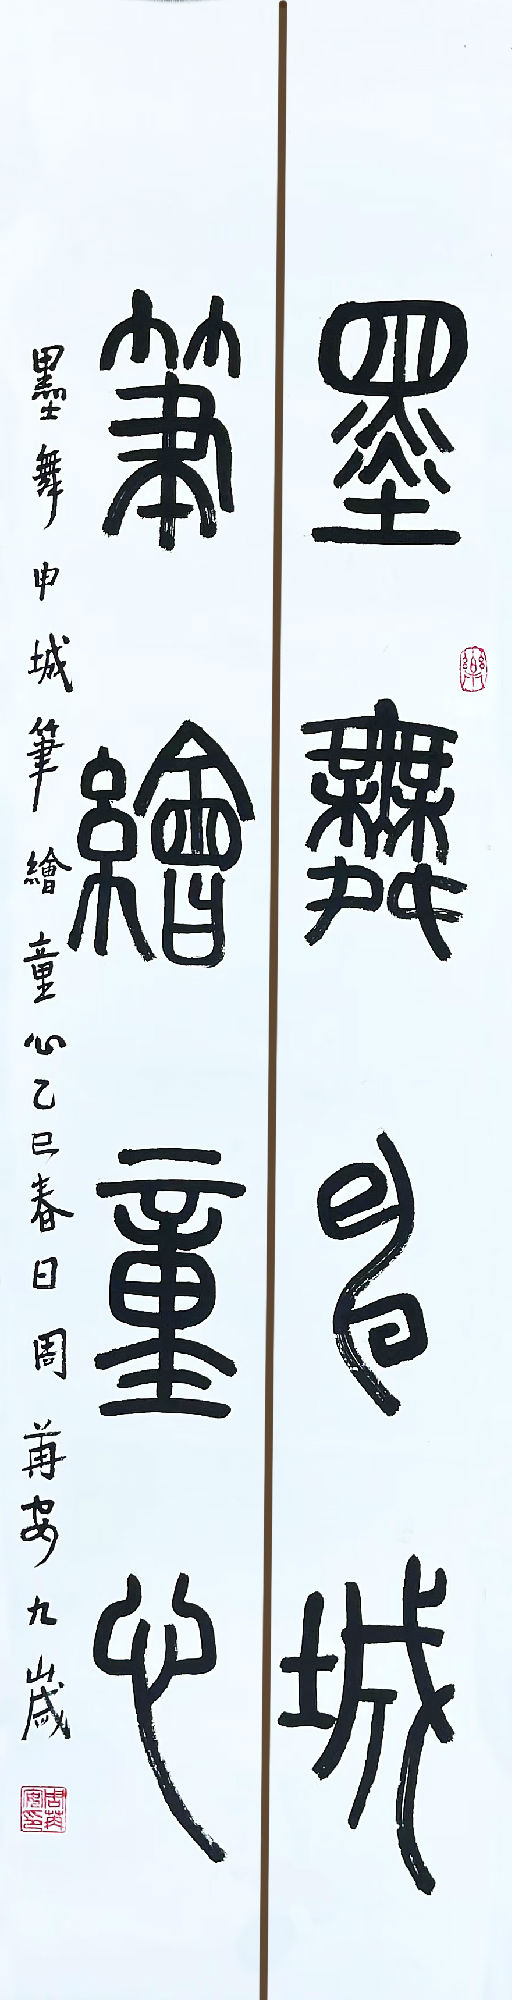 墨舞申城
筆繪童心
墨舞申城筆繪童心乙巳春日周苒安九歲